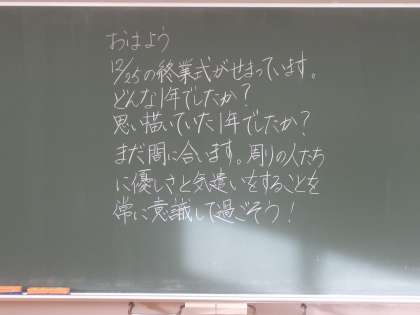 おはよう
12/25の終業式がせまっています。
どんな1年でしたか?
思い描いていた1年でしたか?
まだ間に合います。周りの人たち
に優しさと気遣いをすることを
常に意識して過ごそう!